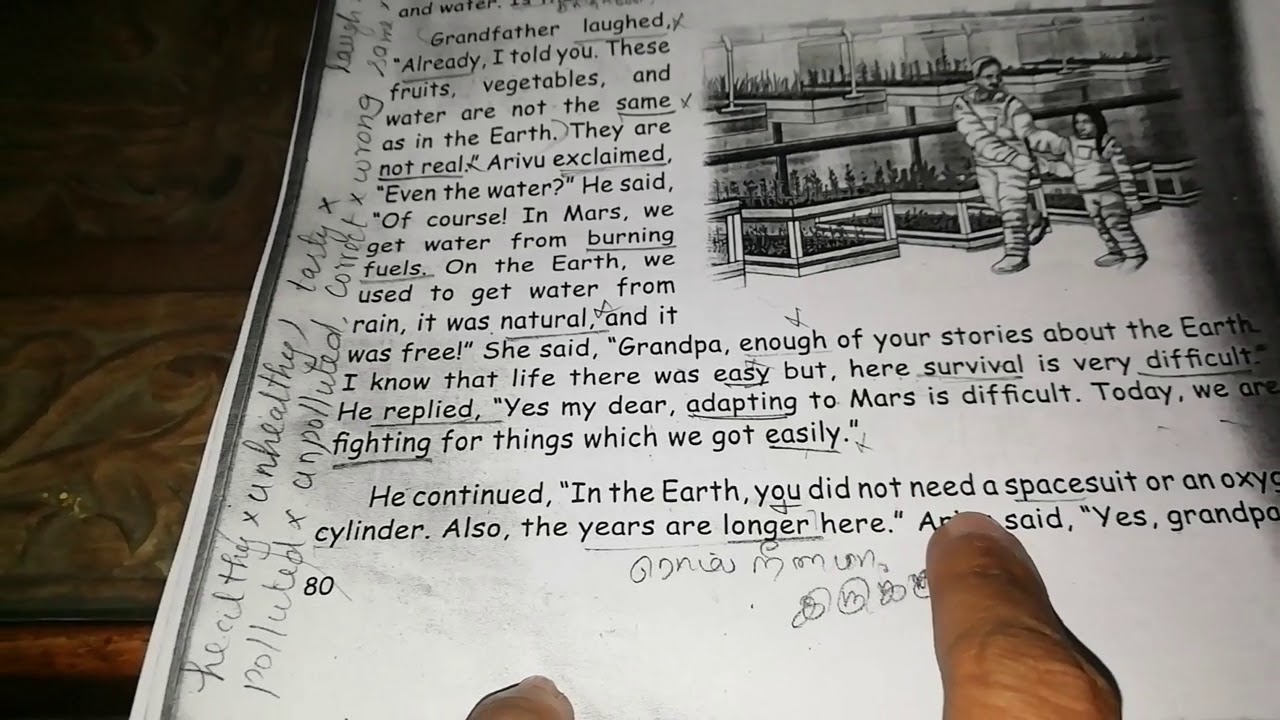 and water. Is
Grandfather laughed,
"Already, I told you. These
fruits, vegetables, and
water are not the same
as in the Earth. They are
not real." Arivu exclaimed,
"Even the water?" He said,
"Of course! In Mars, we
get water from burning
fuels. On the Earth, we
used to get water from
rain, it was natural, and it
was free!" She said, "Grandpa, enough of your stories about the Earth.
I know that life there was easy but, here survival is very difficult."
He replied, "Yes my dear, adapting to Mars is difficult. Today, we are
fighting for things which we got easily."
He continued, "In the Earth, you did not need a spacesuit or an oxyg
cylinder. Also, the years are longer here." said, "Yes, grandpa
80
healthy x unheathy, tasty x
polluted x unpolluted, correct x wrong
laugh
same x